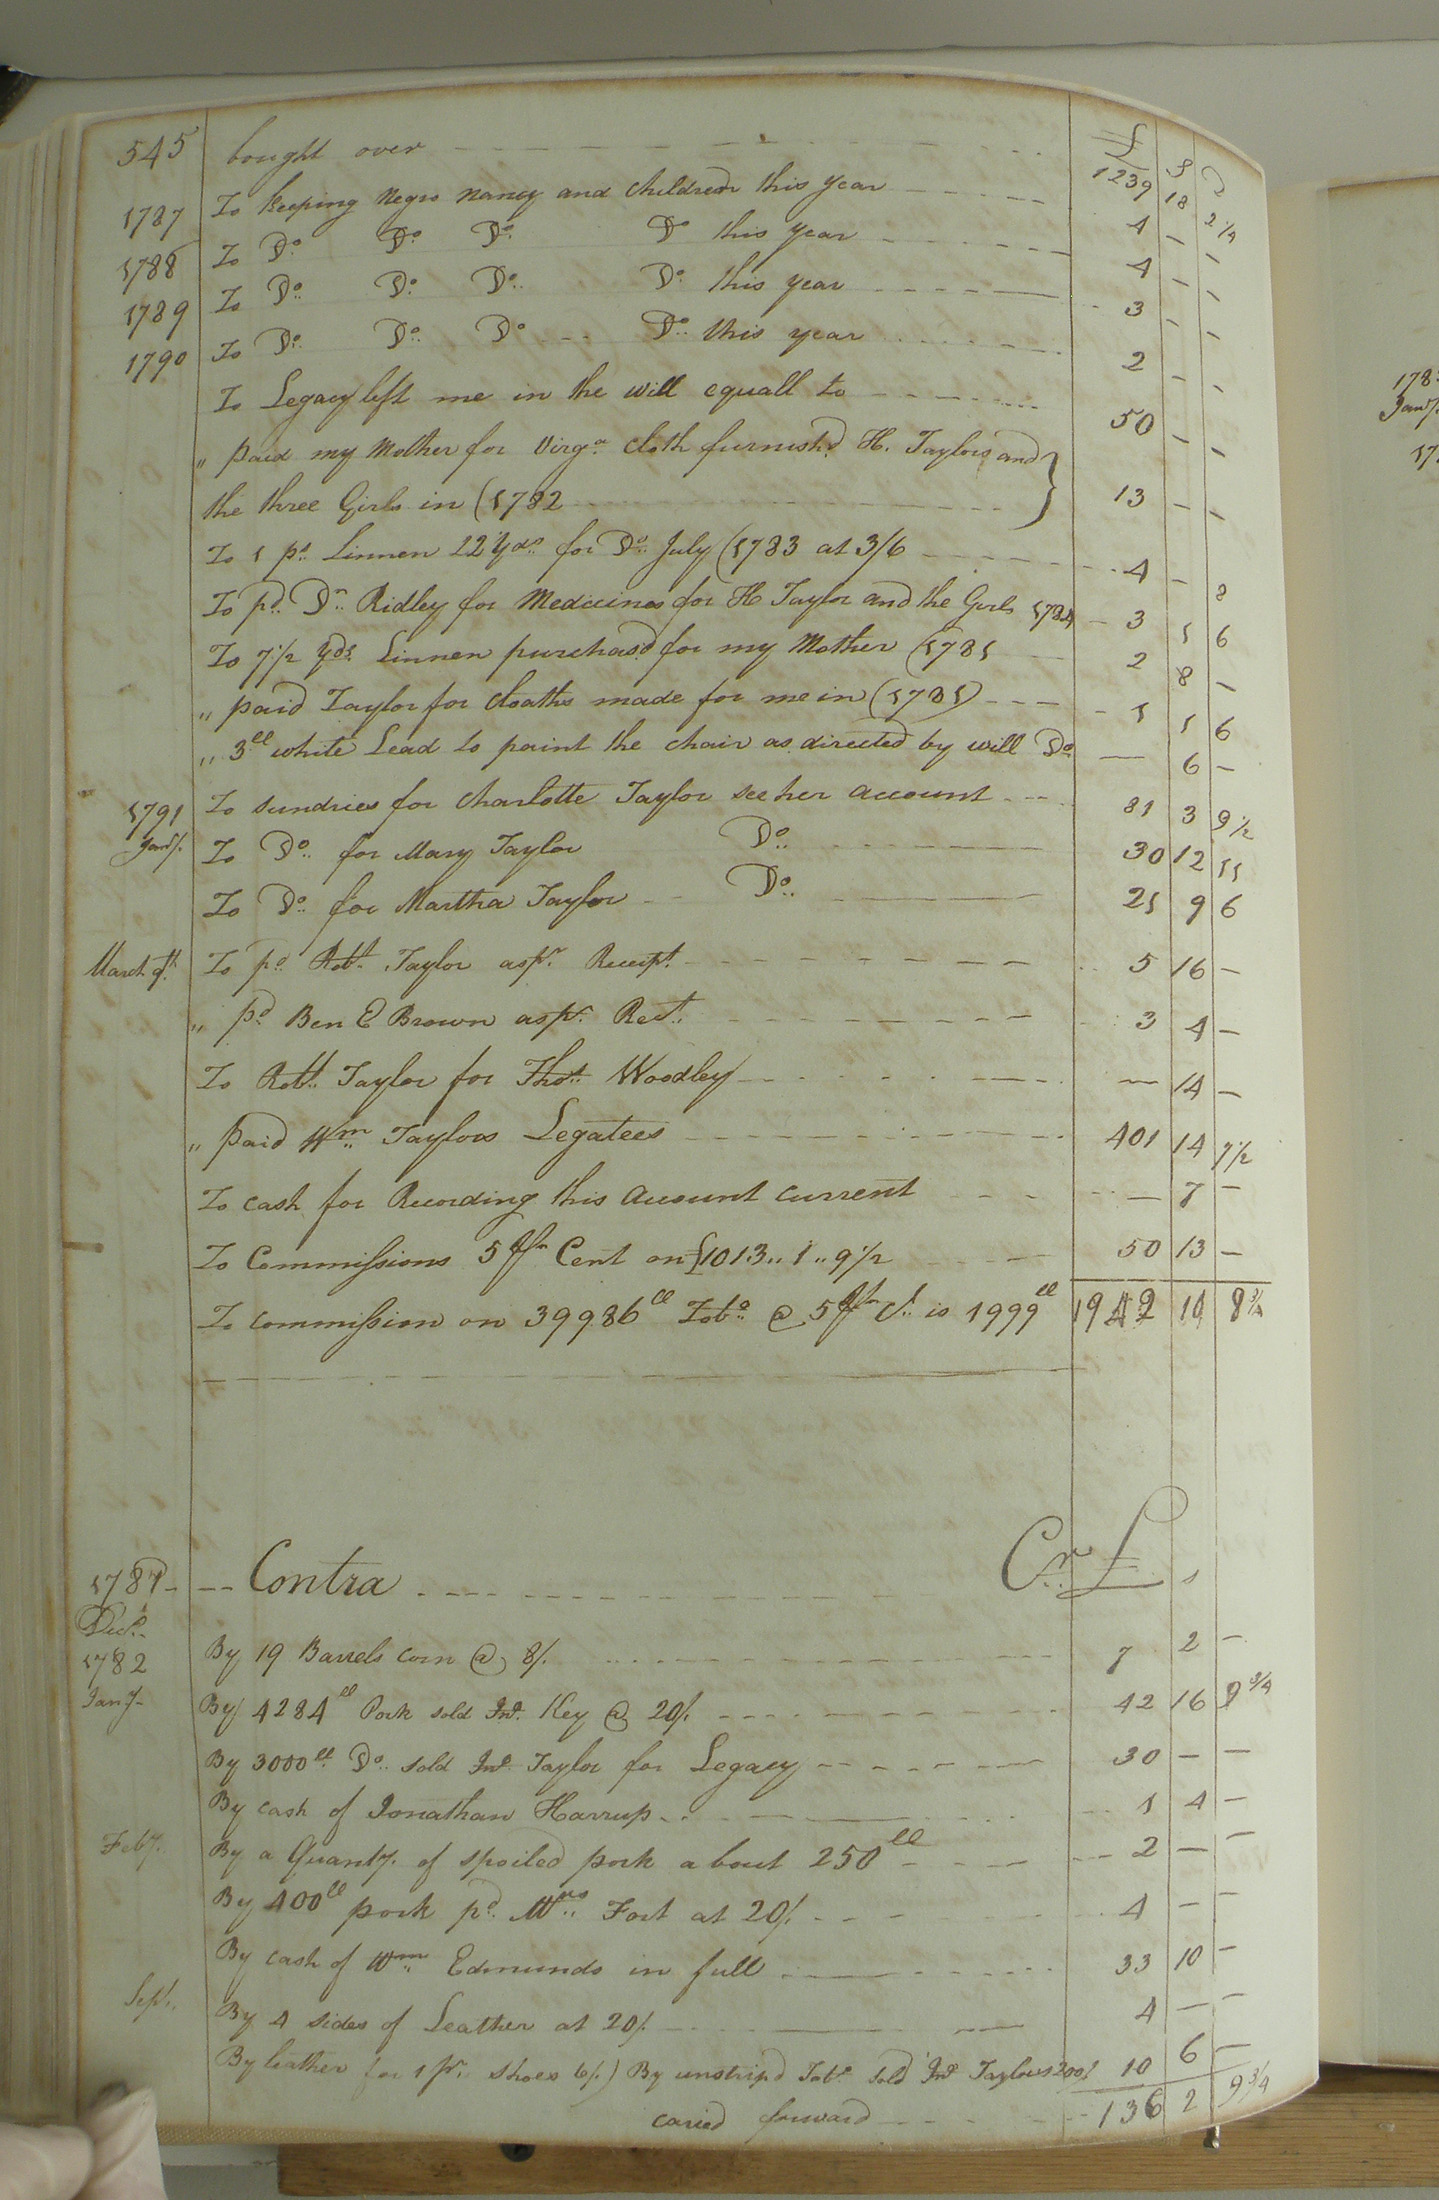 545 bought over £ S D
1239 18 2 1/4
1787 To keeping Negro Nancy and children this year 4 — —
1788 To Do. Do. Do. Do this year 4 — —
1789 To Do. Do. Do. Do. this year 3 — —
1790 To Do. Do. Do Do. this year 2 — —
To Legacy left me in the will equall to 50 — —
" paid my Mother for Virga. cloth furnish'd H. Taylors and
the three Girls in (1782 13 — —
To 1 ps. Linnen 22 yds. for Do. July (1783 at 3/6 4 — 8
To pd. Dr. Ridley for Medicines for H Taylor and the Girls 1784 3 1 6
To 7 1/2 yds. Linnen purchas'd for my Mother (1785 2 8 —
" paid Taylor for cloaths made for me in (1785) 1 1 6
" 3ll white Lead to paint the chair as directed by will Do — 6 —
To sundries for Charlotte Taylor see her account 81 3 9 1/2
1791
Jany. To Do. for Mary Taylor Do. 30 12 11
To Do. for Martha Taylor Do. 21 9 6
March 9th To pd. Robt. Taylor as pr. Receipt 5 16 —
" pd Ben E Brown as pr. Rect. 3 4 —
To Robt. Taylor for Thos. Woodley — 14 —
" paid Wm. Taylors Legatees 401 14 7 1/2
To cash for Recording this Account current — 7 —
To Commissions 5 pr Cent on £1013..1..9 1/2 50 13 —
To commission on 39986ll Tobo. @ 5 pr Ct. is 1999ll 1942 10 8 3/4
1781 Contra Cr. £ s
Decr.
1782 By 19 Barrels corn @ 8/. 7 2 —
Jany By 4284ll Pork sold Jno. Key @ 20/. 42 16 9 3/4
By 3000ll Do. sold Jno. Taylor for Legacy 30 — —
By cash of Jonathan Harrup 1 4 —
Feby. By a Quanty. of spoiled pork about 250ll 2 — —
By 400ll pork pd. Mrs. Fort at 20/. 4 — —
By cash of Wm. Edmunds in full 33 10 —
Sept. By 4 sides of Leather at 20/. 4 — —
By leather for 1 pr. shoes 6/.) By unstrip'd Tobo. sold Jno Taylors 200/ 10 6 —
caried forward 136 2 9 3/4
178
Jany.
17